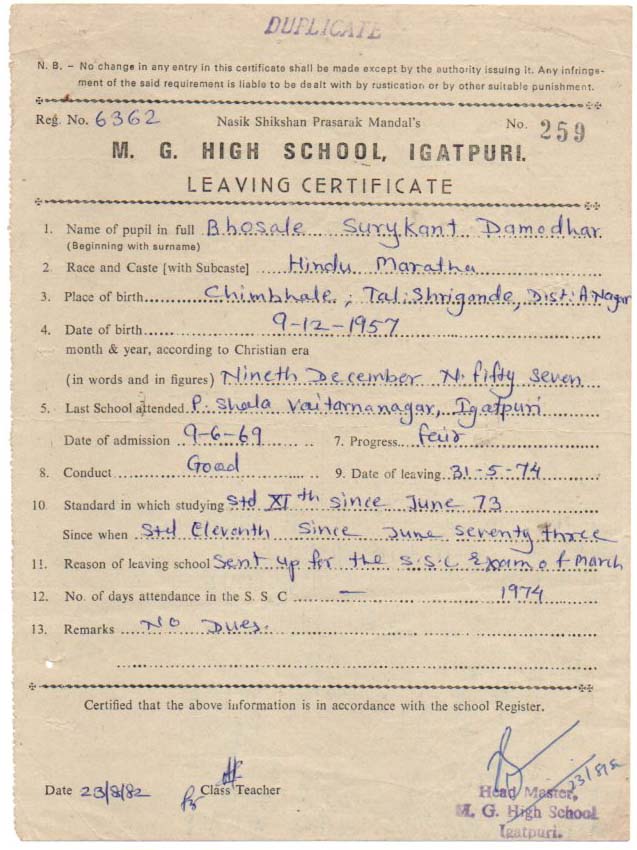 DUPLICATE
N. B. – No change in any entry in this certificate shall be made except by the authority issuing it. Any infringe-
ment of the said requirement is liable to be dealt with by rustication or by other suitable punishment.
Reg. No. 6362 Nasik Shikshan Prasarak Mandal's No. 259
M. G. HIGH SCHOOL, IGATPURI.
LEAVING CERTIFICATE
1. Name of pupil in full Bhosale Surykant Damodhar
(Beginning with surname)
2. Race and Caste [with Subcaste] Hindu Maratha
3. Place of birth Chimbhale, Tal: Shrigonde, Dist: A.Nagar
4. Date of birth 9-12-1957
month & year, according to Christian era
(in words and in figures) Nineth December N. fifty seven
5. Last School attended P. Shala Vaitarnanagar, Igatpuri
Date of admission 9-6-69 7. Progress fair
8. Conduct Good 9. Date of leaving 31-5-74
10. Standard in which studying Std XIth since June 73
Since when Std Eleventh Since June seventy three
11. Reason of leaving school Sent up for the S.S.C Exam of March
12. No. of days attendance in the S. S. C — 1974
13. Remarks No Dues.
Certified that the above information is in accordance with the school Register.
Date 23/8/82 Class Teacher 23/8/82
Head Master,
M. G. High School
Igatpuri.